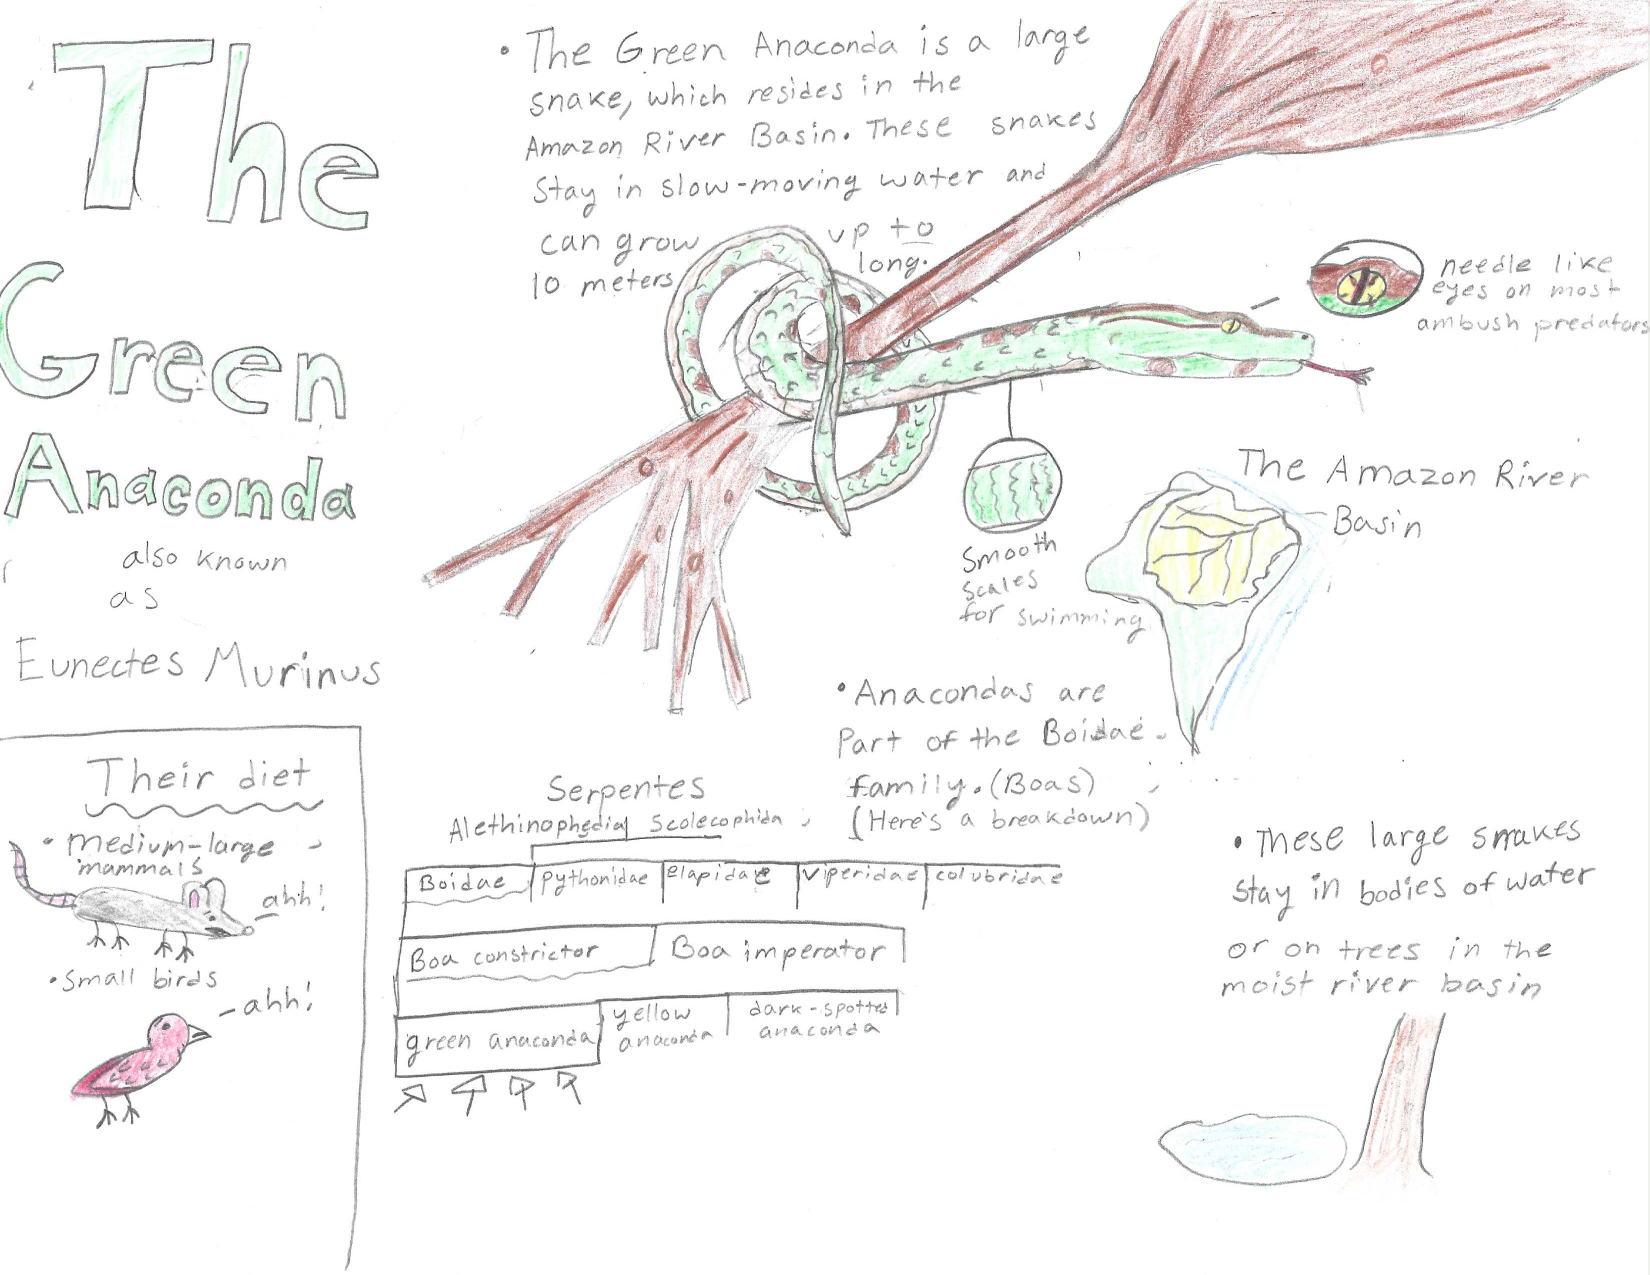 The
Green
Anaconda
also known
as
Eunectes Murinus
• The Green Anaconda is a large
snake, which resides in the
Amazon River Basin. These snakes
stay in slow-moving water and
can grow up to
10 meters long.
needle like
eyes on most
ambush predators
Smooth
scales
for swimming
The Amazon River
Basin
• Anacondas are
Part of the Boidae
family. (Boas)
(Here's a breakdown)
Serpentes
Alethinophedia Scolecophida
Boidae pythonidae elapidae viperidae colubridae
Boa constrictor Boa imperator
green anaconda yellow anaconda dark-spotted anaconda
Their diet
• medium-large
mammals
ahh!
• Small birds
ahh!
• These large snakes
stay in bodies of water
or on trees in the
moist river basin